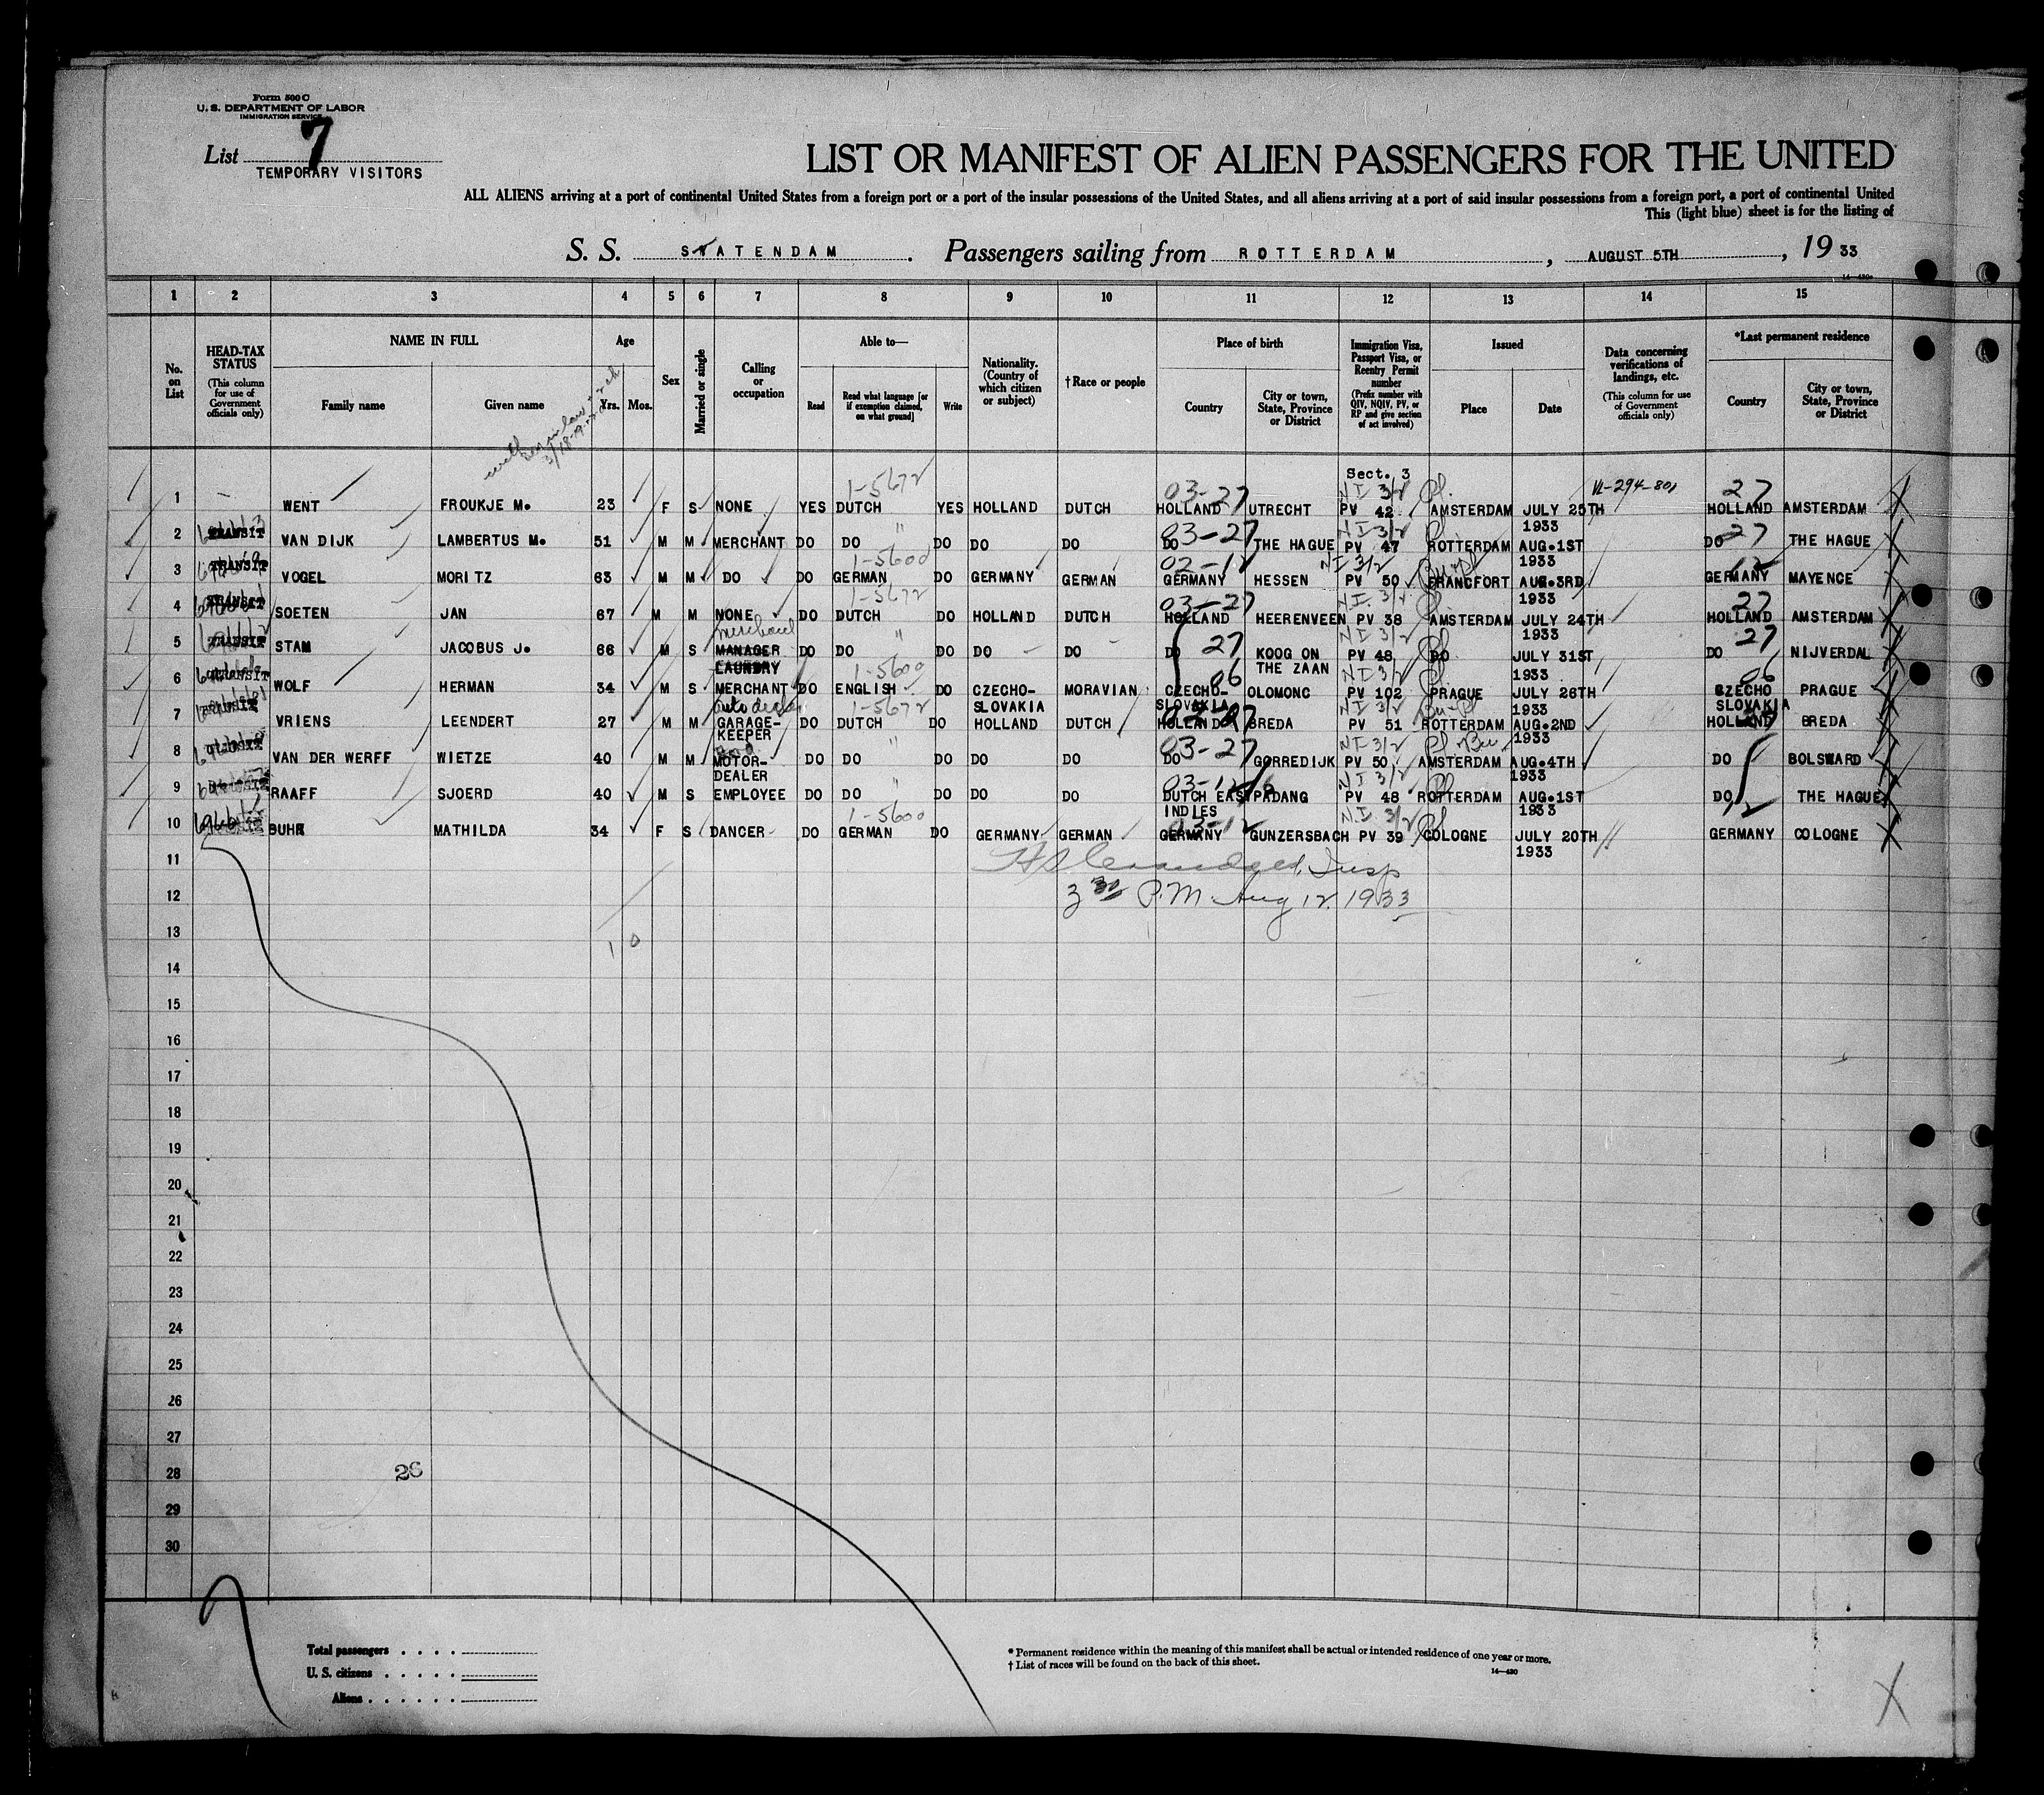 Form 500 C
U. S. DEPARTMENT OF LABOR
IMMIGRATION SERVICE
List 7
TEMPORARY VISITORS
LIST OR MANIFEST OF ALIEN PASSENGERS FOR THE UNITED
ALL ALIENS arriving at a port of continental United States from a foreign port or a port of the insular possessions of the United States, and all aliens arriving at a port of said insular possessions from a foreign port, a port of continental United
This (light blue) sheet is for the listing of
S. S. STATENDAM . Passengers sailing from ROTTERDAM , AUGUST 5TH , 19 33
1 2 3 4 5 6 7 8 9 10 11 12 13 14 15
No. on List
HEAD-TAX STATUS (This column for use of Government officials only)
NAME IN FULL
Family name
Given name
Age
Yrs. Mos.
Sex
Married or single
Calling or occupation
Able to—
Read
Read what language [or if exemption claimed, on what ground]
Write
Nationality. (Country of which citizen or subject)
† Race or people
Place of birth
Country
City or town, State, Province or District
Immigration Visa, Passport Visa, or Reentry Permit number (Prefix number with QIV, NQIV, PV, or RP and give section of act involved)
Issued
Place
Date
Data concerning verifications of landings, etc. (This column for use of Government officials only)
*Last permanent residence
Country
City or town, State, Province or District
Sect. 3
1-5672 03-27 NI 3/2 27
1 WENT FROUKJE M. 23 F S NONE YES DUTCH YES HOLLAND DUTCH HOLLAND UTRECHT PV 42 AMSTERDAM JULY 25TH 1933 HOLLAND AMSTERDAM
" 03-27 NI 3/2 27
2 TRANSIT VAN DIJK LAMBERTUS M. 51 M M MERCHANT DO DO DO DO DO DO THE HAGUE PV 47 ROTTERDAM AUG.1ST 1933 DO THE HAGUE
1-5600 02-12 NI 3/2 12
3 TRANSIT VOGEL MORITZ 63 M M DO DO GERMAN DO GERMANY GERMAN GERMANY HESSEN PV 50 FRANCFORT AUG.3RD 1933 GERMANY MAYENCE
1-5672 03-27 NI 3/2 27
4 TRANSIT SOETEN JAN 67 M M NONE DO DUTCH DO HOLLAND DUTCH HOLLAND HEERENVEEN PV 38 AMSTERDAM JULY 24TH 1933 HOLLAND AMSTERDAM
merchant " 27 NI 3/2 27
5 TRANSIT STAM JACOBUS J. 66 M S MANAGER LAUNDRY DO DO DO DO DO DO KOOG ON THE ZAAN PV 48 DO JULY 31ST 1933 DO NIJVERDAL
1-5600 06 NI 3/2 06
6 TRANSIT WOLF HERMAN 34 M S MERCHANT DO ENGLISH DO CZECHO-SLOVAKIA MORAVIAN CZECHO-SLOVAKIA OLOMONC PV 102 PRAGUE JULY 26TH 1933 CZECHO SLOVAKIA PRAGUE
auto dealer 1-5672 NI 3/2
7 VRIENS LEENDERT 27 M M GARAGE-KEEPER DO DUTCH DO HOLLAND DUTCH HOLLAND BREDA PV 51 ROTTERDAM AUG.2ND 1933 HOLLAND BREDA
" 03-27 NI 3/2
8 VAN DER WERFF WIETZE 40 M M MOTOR-DEALER DO DO DO DO DO DO GORREDIJK PV 50 AMSTERDAM AUG.4TH 1933 DO BOLSWARD
" NI 3/2
9 RAAFF SJOERD 40 M S EMPLOYEE DO DO DO DO DO DUTCH EAST INDIES PADANG PV 48 ROTTERDAM AUG.1ST 1933 DO THE HAGUE
1-5600 NI 3/2 12
10 BUHR MATHILDA 34 F S DANCER DO GERMAN DO GERMANY GERMAN GERMANY GUNZERSBACH PV 39 COLOGNE JULY 20TH 1933 GERMANY COLOGNE
11
12 3 30 P.M. Aug 12. 1933
13 10
14
15
16
17
18
19
20
21
22
23
24
25
26
27
28 26
29
30
Total passengers . . . .
U. S. citizens . . . . .
Aliens . . . . . .
* Permanent residence within the meaning of this manifest shall be actual or intended residence of one year or more.
† List of races will be found on the back of this sheet.
14—430